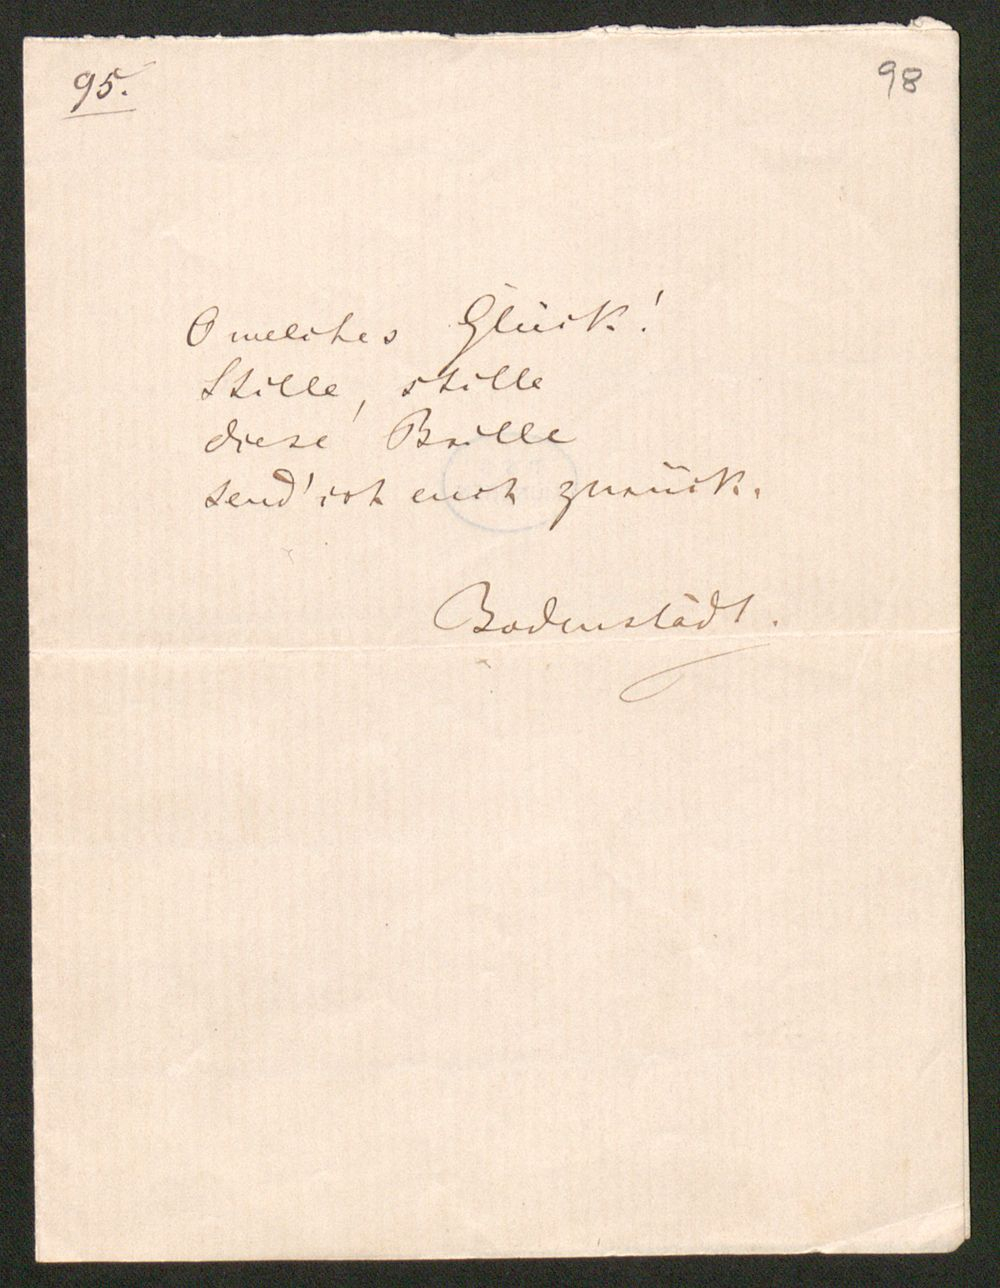 95.
98
O welches Glück!
Stille, stille
diese Brille
send' ich euch zurück.
Bodenstädt.